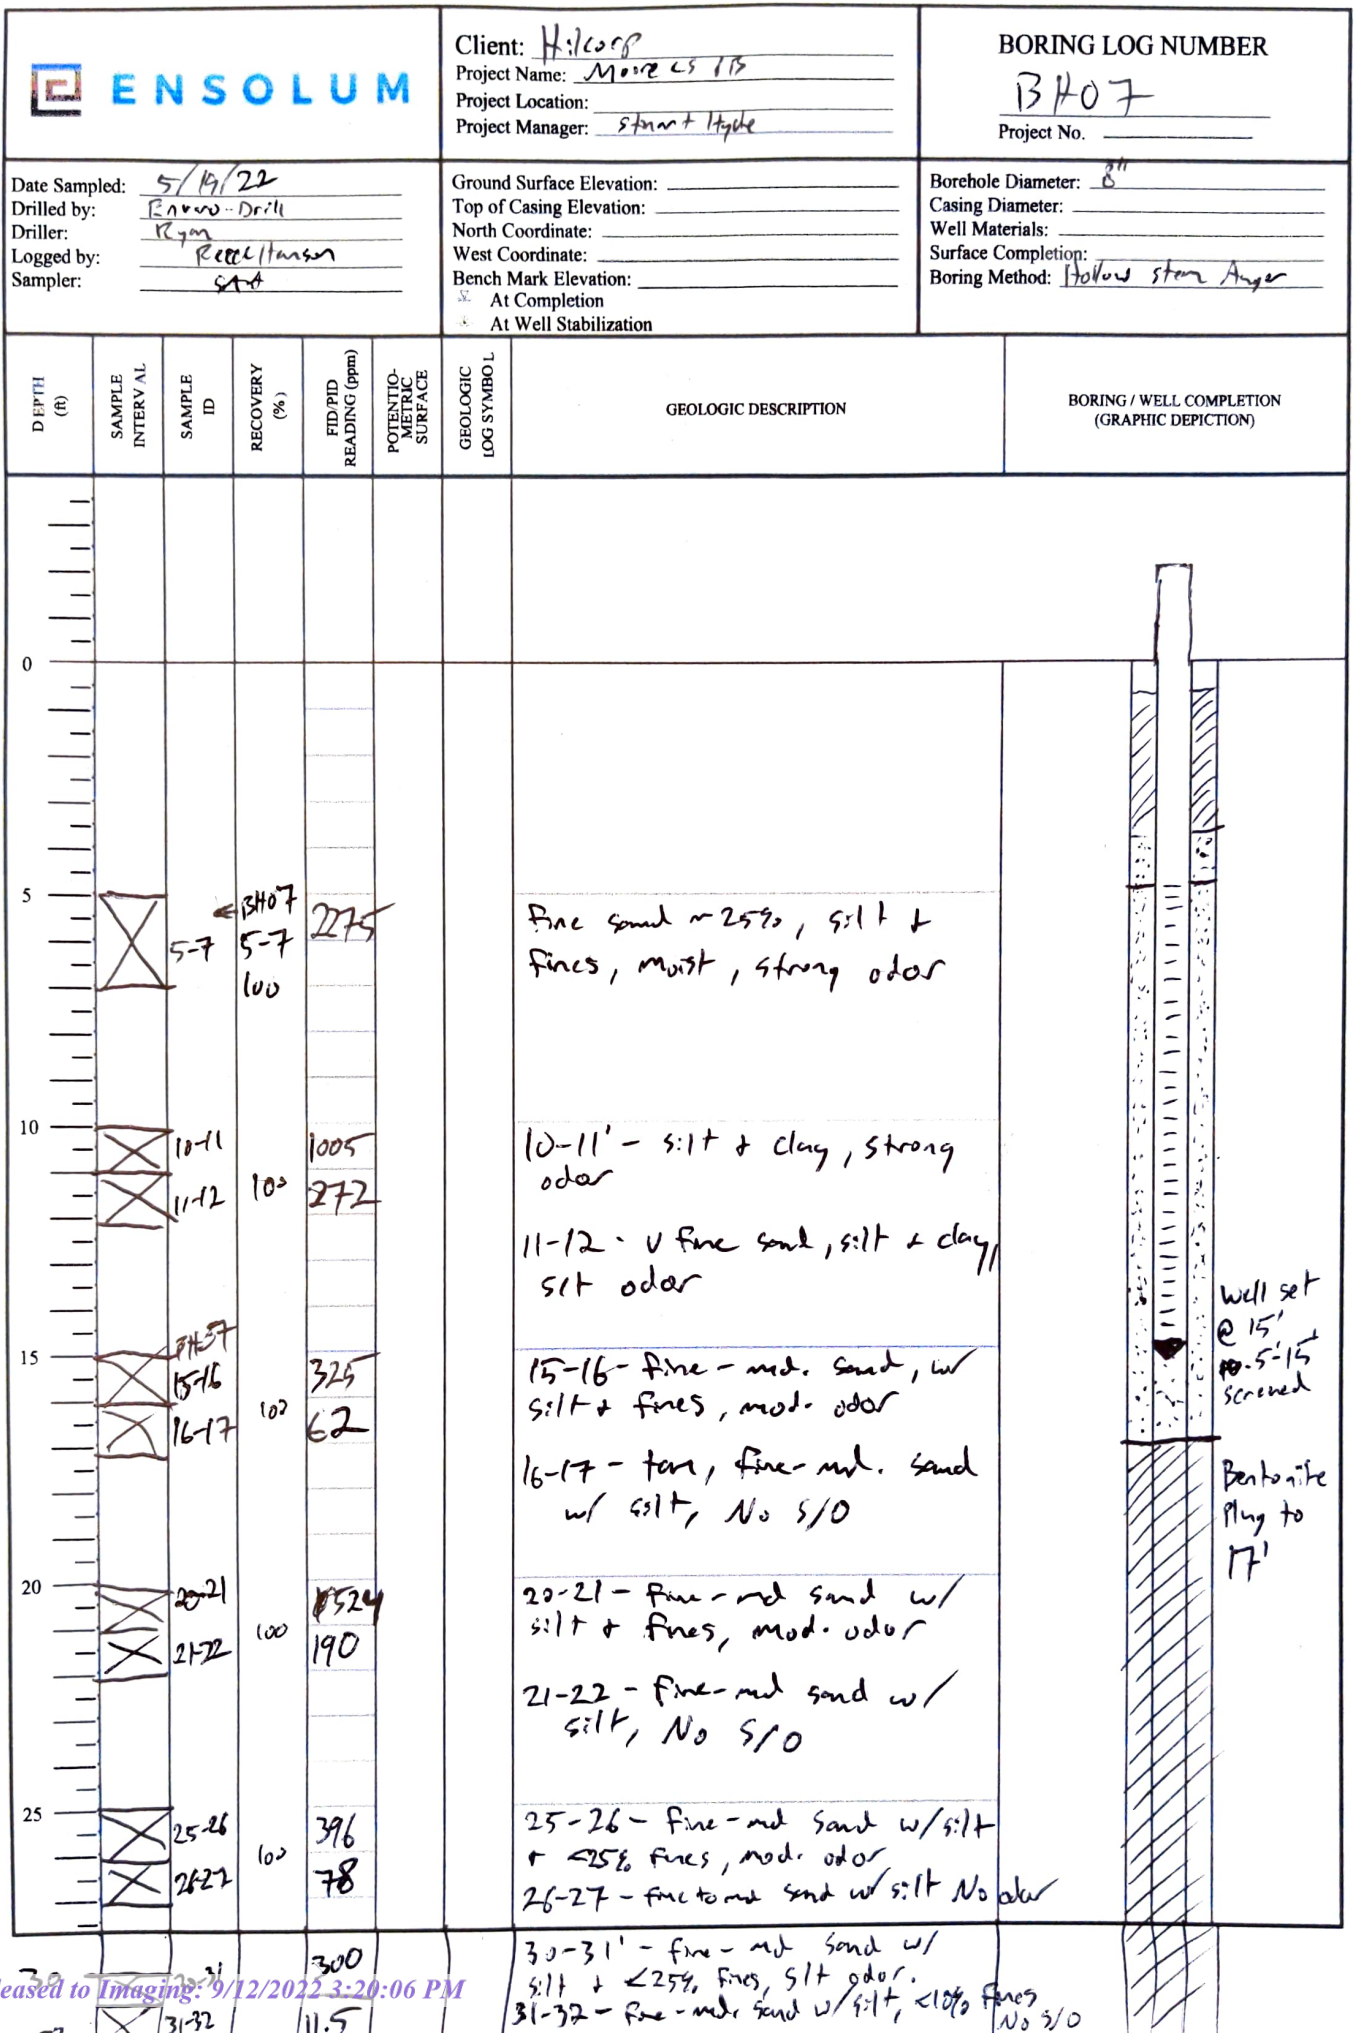 ENSOLUM
Client: Hilcorp
Project Name: Moore LS 1B
Project Location:
Project Manager: Stuart Hyde
BORING LOG NUMBER
BH07
Project No.
Date Sampled: 5/19/22
Drilled by: Enviro-Drill
Driller: Ryan
Logged by: Reece Hanson
Sampler: SAA
Ground Surface Elevation:
Top of Casing Elevation:
North Coordinate:
West Coordinate:
Bench Mark Elevation:
At Completion
At Well Stabilization
Borehole Diameter: 8"
Casing Diameter:
Well Materials:
Surface Completion:
Boring Method: Hollow Stem Auger
DEPTH (ft)
SAMPLE INTERVAL
SAMPLE ID
RECOVERY (%)
FID/PID READING (ppm)
POTENTIO-METRIC SURFACE
GEOLOGIC LOG SYMBOL
GEOLOGIC DESCRIPTION
BORING / WELL COMPLETION
(GRAPHIC DEPICTION)
0
5
BH07
5-7 5-7
100
2275
Fine sand ~25%, silt +
fines, moist, strong odor
10
10-11 1005
11-12 100 272
10-11' - silt + clay, strong
odor
11-12 - v fine sand, silt + clay,
slt odor
Well set
@ 15'
5-15'
screened
15
BH07
15-16 325
16-17 100 62
15-16 - fine - md. sand, w/
silt + fines, mod. odor
16-17 - tan, fine - md. sand
w/ silt, No S/O
Bentonite
Plug to
17'
20
20-21 1524
21-22 100 190
20-21 - fine - md sand w/
silt + fines, mod. odor
21-22 - fine - md sand w/
silt, No S/O
25
25-26 396
26-27 100 78
25-26 - fine - md sand w/silt
+ <25% fines, mod. odor
26-27 - fine to md sand w/ silt No odor
30 30-31 300
30-31' - fine - md sand w/
silt + <25% fines, slt odor.
31-32 11.5
31-32 - fine - md. sand w/ silt, <10% fines
No S/O
eased to Imaging: 9/12/2022 3:20:06 PM